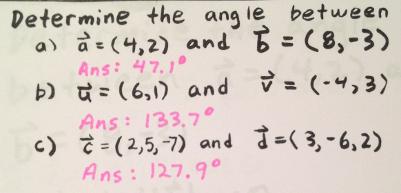 Determine the angle between
a) a⃗ = (4,2) and b⃗ = (8,-3)
Ans: 47.1°
b) u⃗ = (6,1) and v⃗ = (-4,3)
Ans: 133.7°
c) c⃗ = (2,5,-7) and d⃗ = (3,-6,2)
Ans: 127.9°